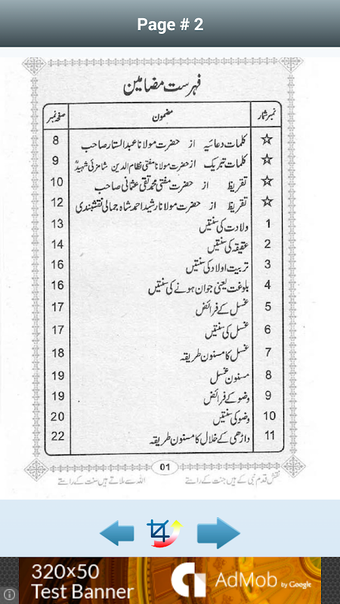 Page # 2
فہرست مضامین
نمبر شمار مضمون صفحہ نمبر
☆ کلمات دعائیہ از حضرت مولانا عبدالستار صاحب 8
☆ کلمات تبریک از حضرت مولانا مفتی نظام الدین شامزئی شہیدؒ 9
☆ تقریظ از حضرت مفتی محمد تقی عثمانی صاحب 10
☆ تقریظ از حضرت مولانا رشید احمد شاہ جمالی نقشبندی 12
1 ولادت کی سنتیں 13
2 عقیقہ کی سنتیں 14
3 تربیت اولاد کی سنتیں 16
4 بلوغت یعنی جوان ہونے کی سنتیں 16
5 غسل کے فرائض 17
6 غسل کی سنتیں 17
7 غسل کا مسنون طریقہ 18
8 مسنون غسل 19
9 وضو کے فرائض 19
10 وضو کی سنتیں 20
11 داڑھی کے خلال کا مسنون طریقہ 22
01
نقش قدم نبی کے ہیں جنت کے راستے اللہ سے ملاتے ہیں سنت کے راستے
320x50
Test Banner
AdMob by Google